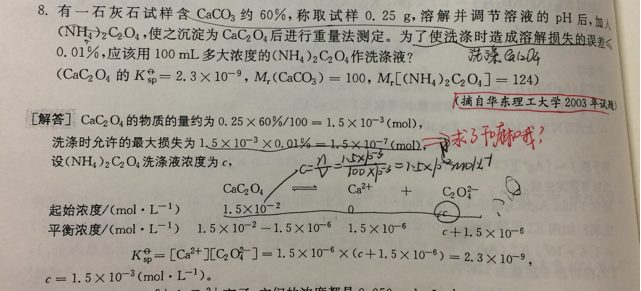 8. 有一石灰石试样含 CaCO₃ 约 60%,称取试样 0.25 g,溶解并调节溶液的 pH 后,加入
(NH₄)₂C₂O₄,使之沉淀为 CaC₂O₄ 后进行重量法测定。为了使洗涤时造成溶解损失的误差≤
0.01%,应该用 100 mL 多大浓度的(NH₄)₂C₂O₄ 作洗涤液?
洗涤CaC₂O₄
(CaC₂O₄ 的 K⊖sp = 2.3×10⁻⁹, Mr(CaCO₃) = 100, Mr[(NH₄)₂C₂O₄] = 124)
(摘自华东理工大学 2003 年试题)
[解答] CaC₂O₄ 的物质的量约为 0.25×60%/100 = 1.5×10⁻³(mol),
洗涤时允许的最大损失为 1.5×10⁻³×0.01% = 1.5×10⁻⁷(mol),
求了干嘛和我?
设(NH₄)₂C₂O₄ 洗涤液浓度为 c,
c=n/V=1.5×10⁻³/100×10⁻³=1.5×10⁻²mol·L⁻¹
CaC₂O₄ ⇌ Ca²⁺ + C₂O₄²⁻
起始浓度/(mol·L⁻¹) 1.5×10⁻² 0 c
平衡浓度/(mol·L⁻¹) 1.5×10⁻²−1.5×10⁻⁶ 1.5×10⁻⁶ c+1.5×10⁻⁶
K⊖sp = [Ca²⁺][C₂O₄²⁻] = 1.5×10⁻⁶×(c+1.5×10⁻⁶) = 2.3×10⁻⁹,
c = 1.5×10⁻³(mol·L⁻¹)。